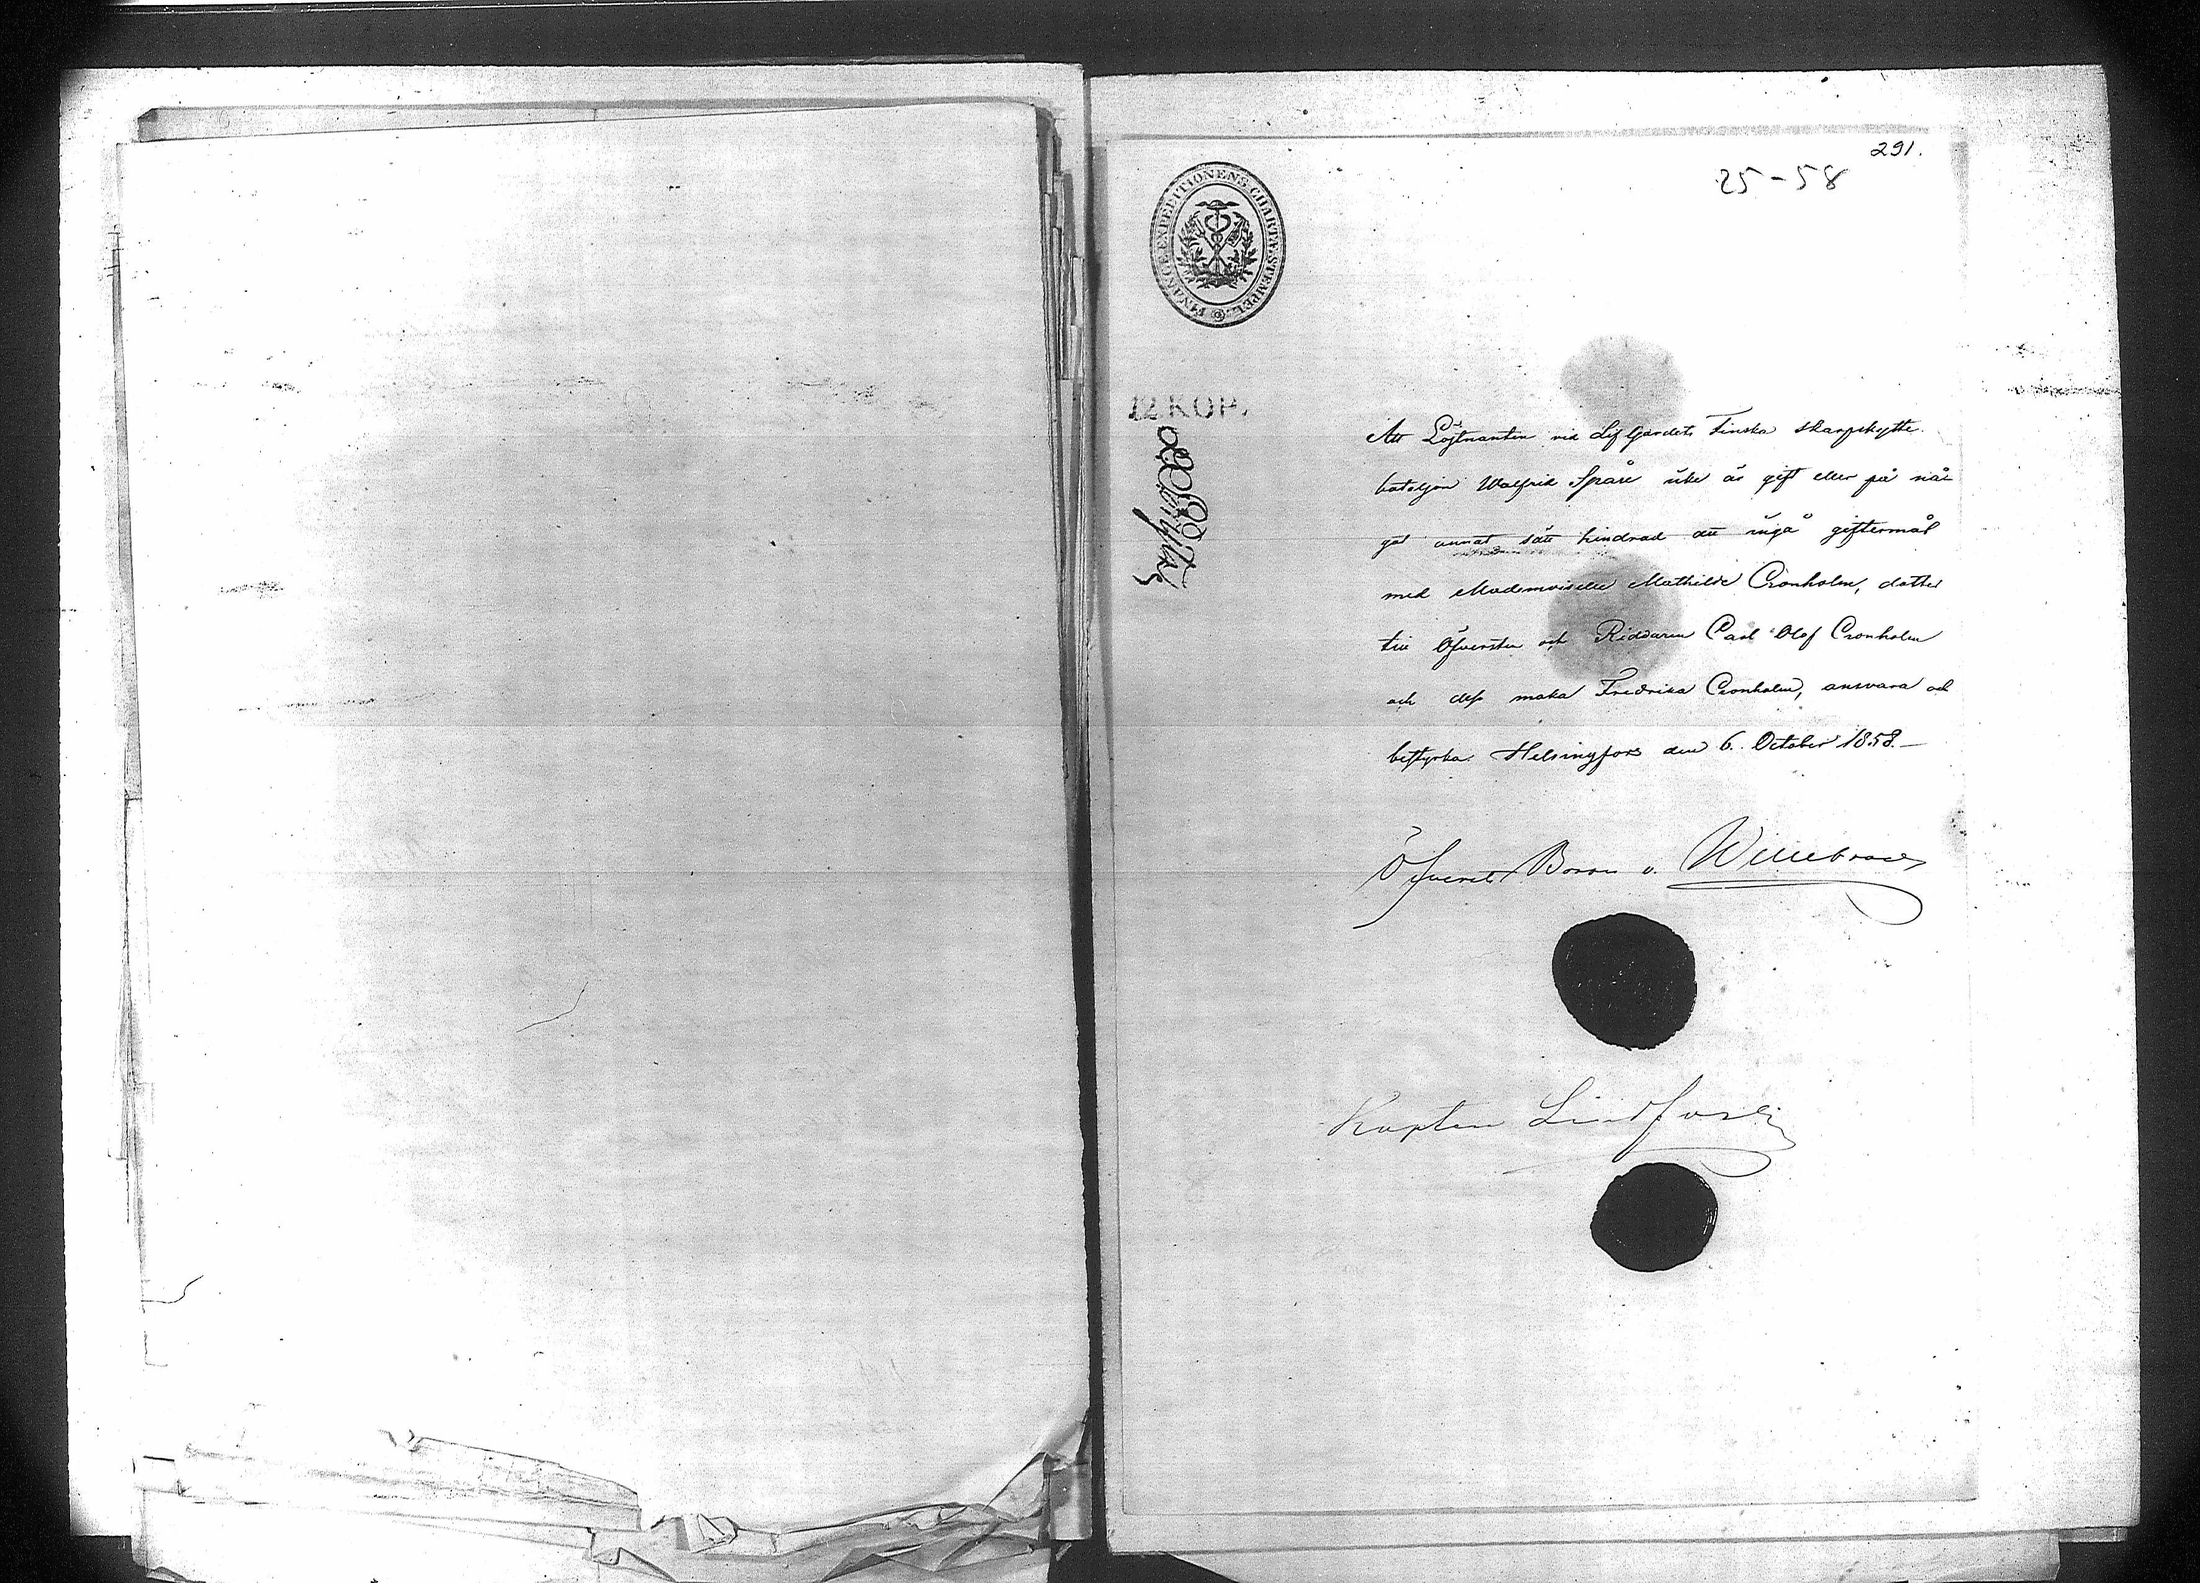 291.
25-58
FINANCE EXPEDITIONENS CHARTÆ STEMPEL.
12 KOP.
Att Löjtnanten vid LifGardets Finska Skarpskytte
bataljon Walfrid Spåre icke är gift eller på nå
got annat sätt hindrad att ingå giftermål
med Mademoiselle Mathilde Cronholm, dotter
till Öfversten och Riddaren Carl Olof Cronholm
och dess maka Fredrika Cronholm, ansvara och
bestyrka. Helsingfors den 6. October 1858.—
Öfverst Baron v. Willebrand
Kapten Lindfors